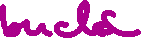 buclă